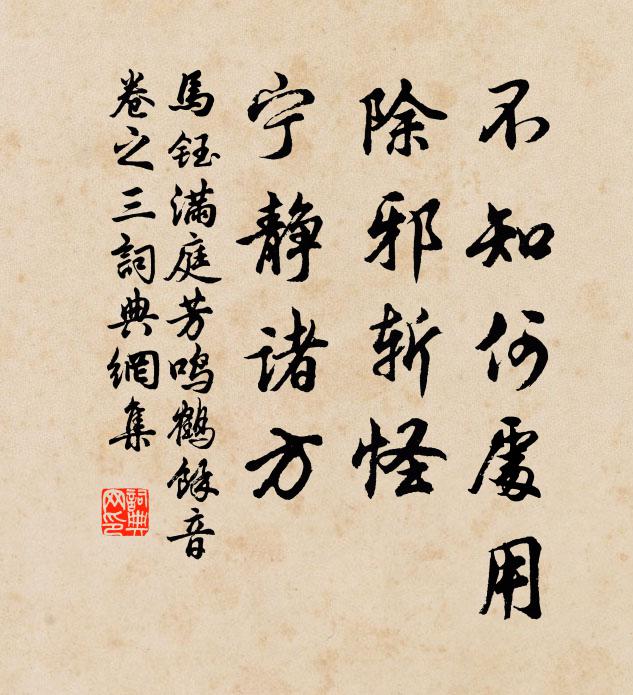 不知何處用
除邪斬怪
宁靜诸方
馬鈺滿庭芳鸣鶴餘音
卷之三詞典網集
詞典網印